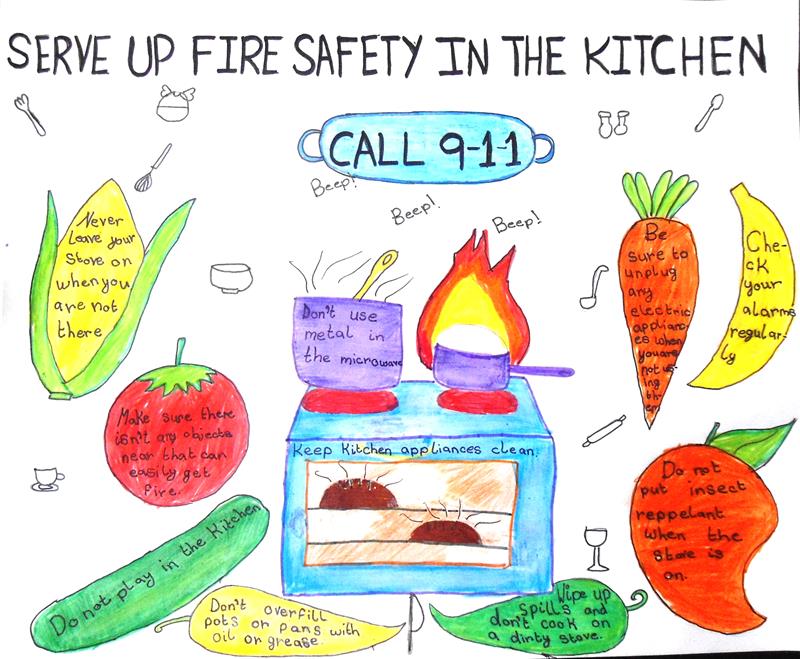 SERVE UP FIRE SAFETY IN THE KITCHEN
CALL 9-1-1
Beep!
Beep!
Beep!
Never
Leave your
Stove on
when you
are not
there
Don't use
metal in
the microwave
Be
sure to
unplug
any
electric
applianc-
es when
you are
not us-
ing
th-
em
Che-
ck
your
alarms
regular-
ly
Make sure there
isn't any objects
near that can
easily get
fire.
Keep Kitchen appliances clean.
Do not
put insect
reppelant
when the
stove is
on.
Do not play in the Kitchen
Don't overfill
pots or pans with
oil or grease.
Wipe up
spills and
don't cook on
a dirty stove.